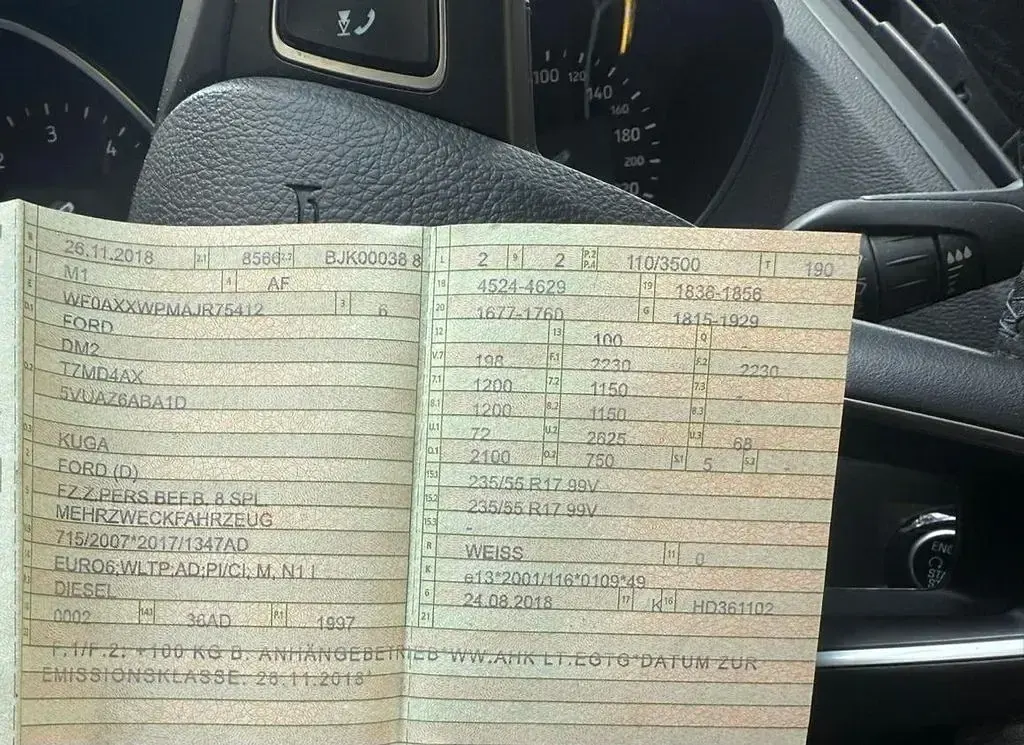 3
4
100 120
140
160
180
200
26.11.2018 2.1 8566 2.2 BJK00038 8
M1 4 AF
WF0AXXWPMAJR75412 3 6
FORD
DM2
T7MD4AX
5VUAZ6ABA1D
KUGA
FORD (D)
FZ.Z.PERS.BEF.B. 8 SPL
MEHRZWECKFAHRZEUG
715/2007*2017/1347AD
EURO6;WLTP;AD;PI/CI, M, N1 I
DIESEL
0002 14.1 36AD P.1 1997
L 2 9 2 P.2 P.4 110/3500 T 190
18 4524-4629 19 1836-1856
20 1677-1760 G 1815-1929
12 - 13 100 Q -
V.7 198 F.1 2230 F.2 2230
7.1 1200 7.2 1150 7.3 -
8.1 1200 8.2 1150 8.3 -
U.1 72 U.2 2625 U.3 68
O.1 2100 O.2 750 S.1 5 S.2 -
15.1 235/55 R17 99V
15.2 235/55 R17 99V
15.3 -
R WEISS 11 0
K e13*2001/116*0109*49
6 24.08.2018 17 K 16 HD361102
21
F.1/F.2: +100 KG B. ANHÄNGEBETRIEB*WW.AHK LT.EGTG*DATUM ZUR
EMISSIONSKLASSE: 26.11.2018*